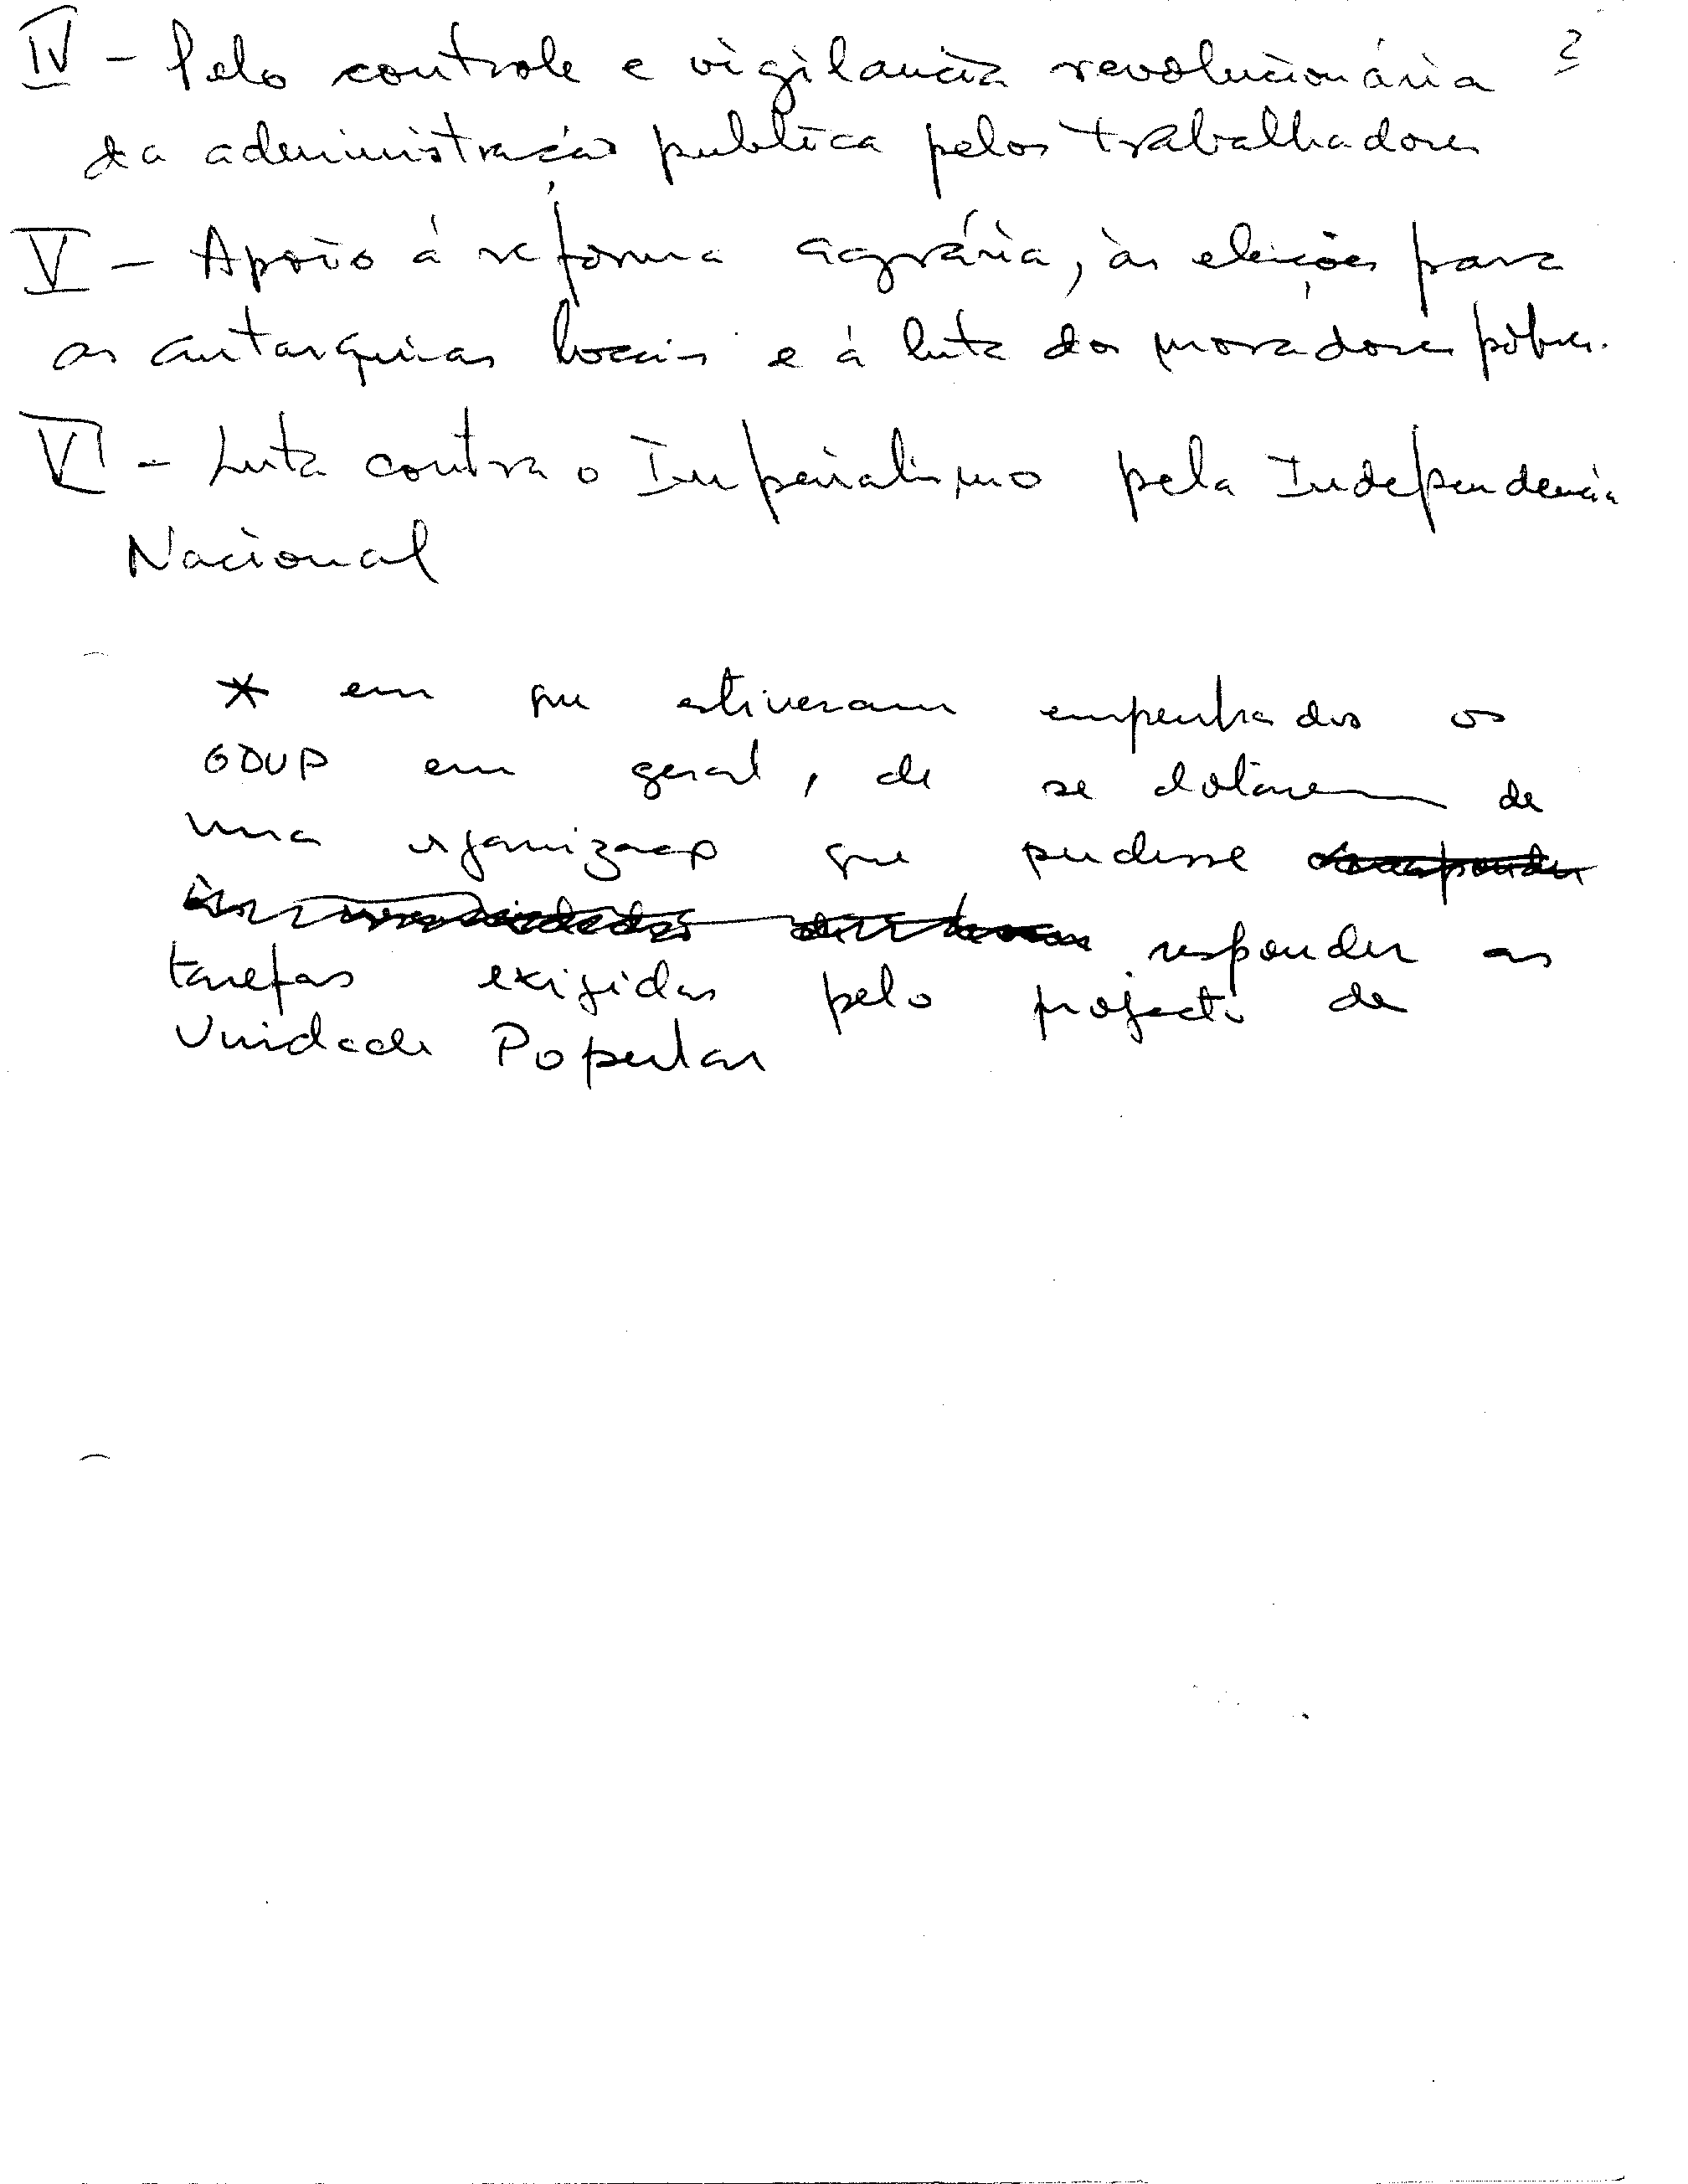 IV - Pelo controle e vigilancia revolucionária 2
da administração publica pelos trabalhadores
V - Apoio á reforma agrária, às eleições para
as autarquias locais e á luta dos moradores pobres.
VI - Luta contra o Imperialismo pela Independencia
Nacional
* em que estiveram empenhados os
GDUP em geral, de se dotarem de
uma organização que pudesse
responder as
tarefas exigidas pelo projecto de
Unidade Popular